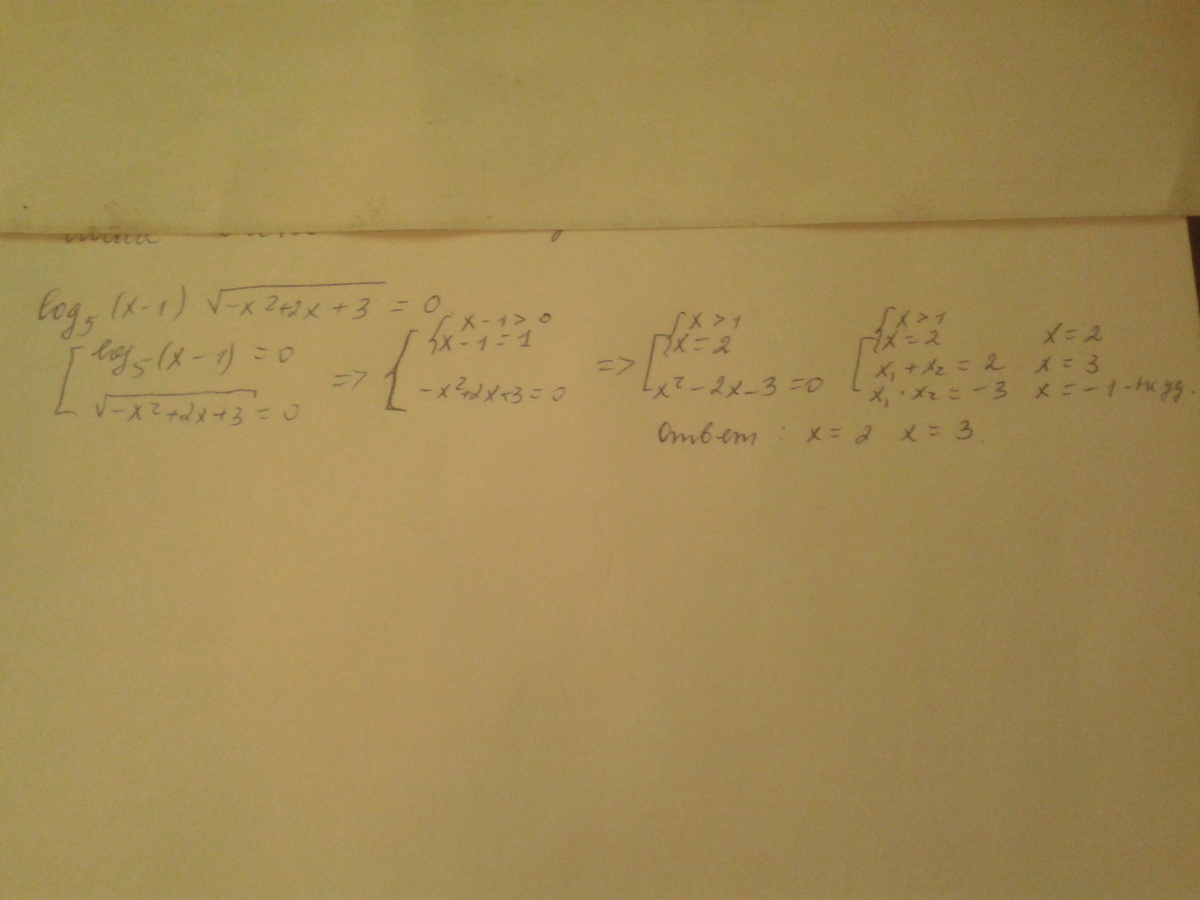 log₅(x-1) √(-x²+2x+3) = 0
[ log₅(x-1) = 0
√(-x²+2x+3) = 0
=> [ { x-1 > 0
x-1 = 1
-x²+2x+3 = 0
=> [ { x > 1
x = 2
x²-2x-3 = 0
[ { x > 1
x = 2
x₁+x₂ = 2
x₁·x₂ = -3
x = 2
x = 3
x = -1 -
Ответ : x = 2 x = 3.